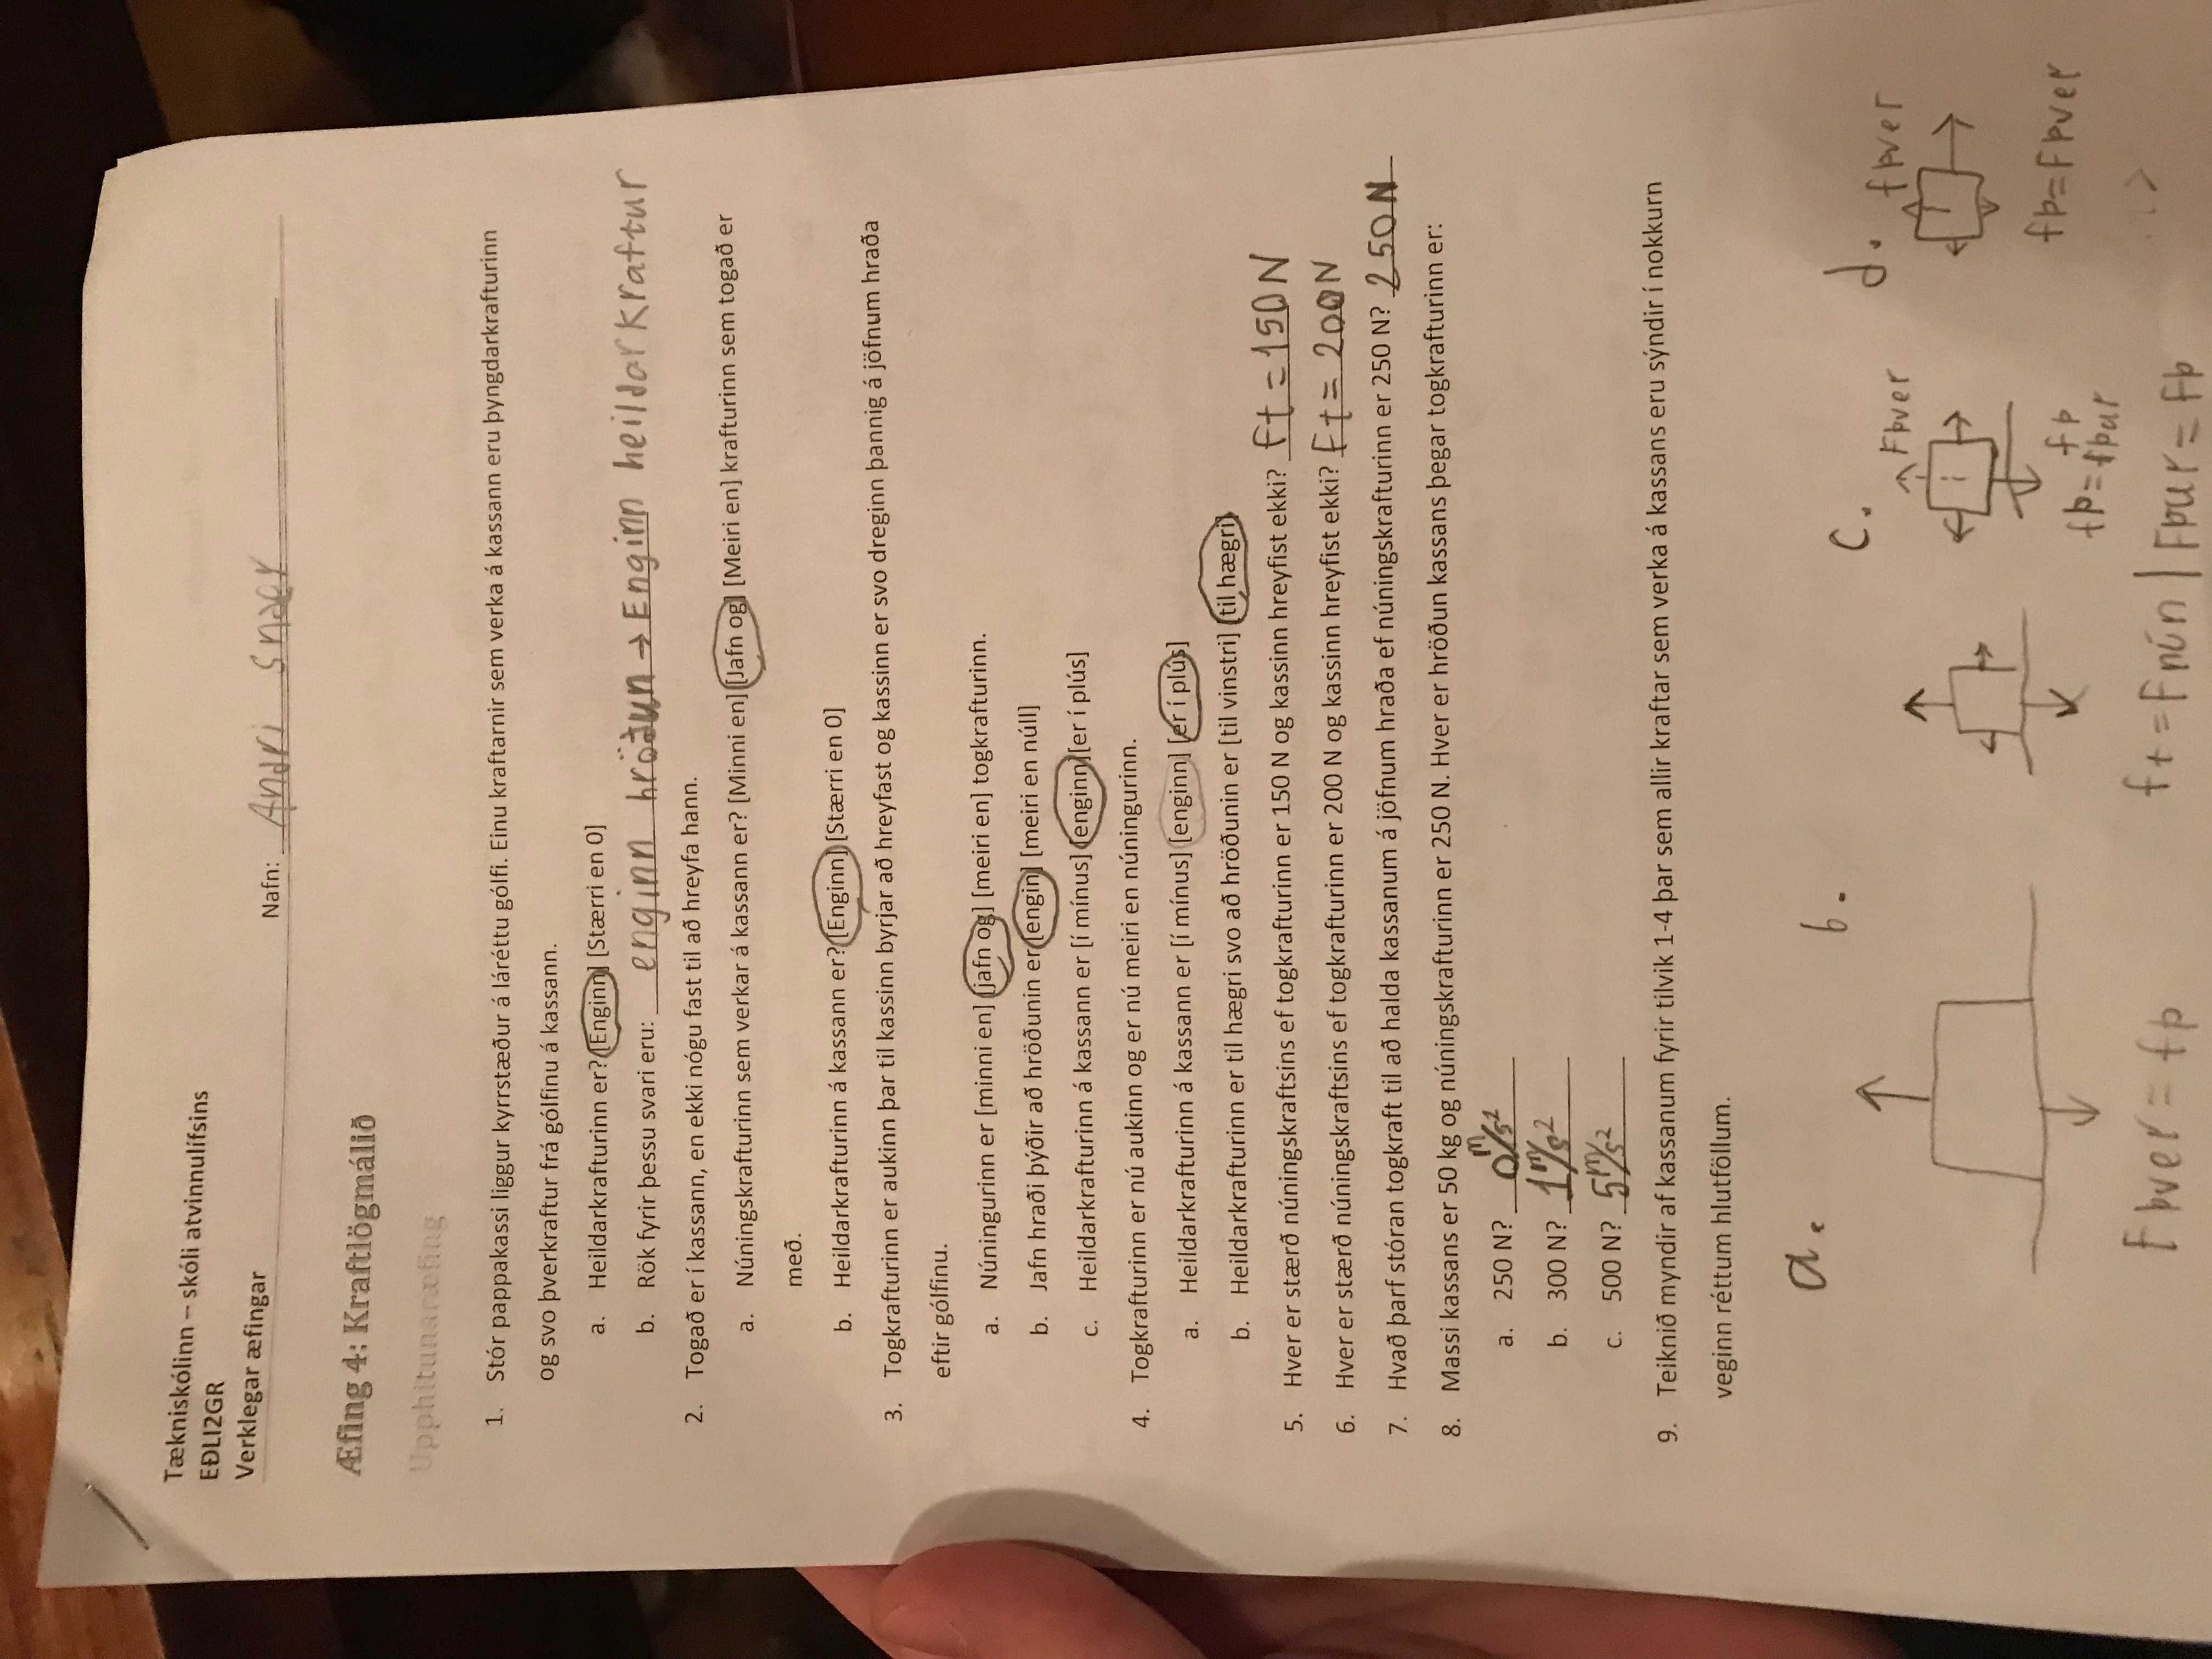 Tækniskólinn – skóli atvinnulífsins
EÐLI2GR
Verklegar æfingar
Nafn: Andri Snær
Æfing 4: Kraftlögmálið
Upphitunaræfing
1. Stór pappakassi liggur kyrrstæður á láréttu gólfi. Einu kraftarnir sem verka á kassann eru þyngdarkrafturinn
og svo þverkraftur frá gólfinu á kassann.
a. Heildarkrafturinn er? [Enginn] [Stærri en 0]
b. Rök fyrir þessu svari eru: enginn hröðun → Enginn heildarkraftur
2. Togað er í kassann, en ekki nógu fast til að hreyfa hann.
a. Núningskrafturinn sem verkar á kassann er? [Minni en] [Jafn og] [Meiri en] krafturinn sem togað er
með.
b. Heildarkrafturinn á kassann er? [Enginn] [Stærri en 0]
3. Togkrafturinn er aukinn þar til kassinn byrjar að hreyfast og kassinn er svo dreginn þannig á jöfnum hraða
eftir gólfinu.
a. Núningurinn er [minni en] [jafn og] [meiri en] togkrafturinn.
b. Jafn hraði þýðir að hröðunin er [engin] [meiri en núll]
c. Heildarkrafturinn á kassann er [í mínus] [enginn] [er í plús]
4. Togkrafturinn er nú aukinn og er nú meiri en núningurinn.
a. Heildarkrafturinn á kassann er [í mínus] [enginn] [er í plús]
b. Heildarkrafturinn er til hægri svo að hröðunin er [til vinstri] [til hægri]
5. Hver er stærð núningskraftsins ef togkrafturinn er 150 N og kassinn hreyfist ekki? Ft = 150 N
6. Hver er stærð núningskraftsins ef togkrafturinn er 200 N og kassinn hreyfist ekki? Ft = 200 N
7. Hvað þarf stóran togkraft til að halda kassanum á jöfnum hraða ef núningskrafturinn er 250 N? 250 N
8. Massi kassans er 50 kg og núningskrafturinn er 250 N. Hver er hröðun kassans þegar togkrafturinn er:
a. 250 N? 0 m/s²
b. 300 N? 1 m/s²
c. 500 N? 5 m/s²
9. Teiknið myndir af kassanum fyrir tilvik 1-4 þar sem allir kraftar sem verka á kassans eru sýndir í nokkurn
veginn réttum hlutföllum.
a. b. c. d.
Fþver fþver
fþ
fþ = fþur
fþ = Fþver
Fþver = fþ
ft = Fnún | Fþur = Fþ